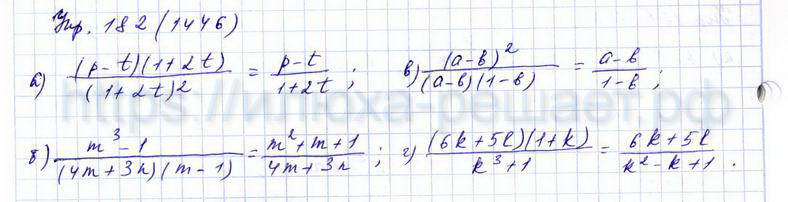 Упр. 182 (1446)
а) (p-t)(1+2t)/(1+2t)² = p-t/1+2t; в) (a-b)²/(a-b)(1-b) = a-b/1-b;
б) m³-1/(4m+3n)(m-1) = m²+m+1/4m+3n; г) (6k+5l)(1+k)/k³+1 = 6k+5l/k²-k+1.